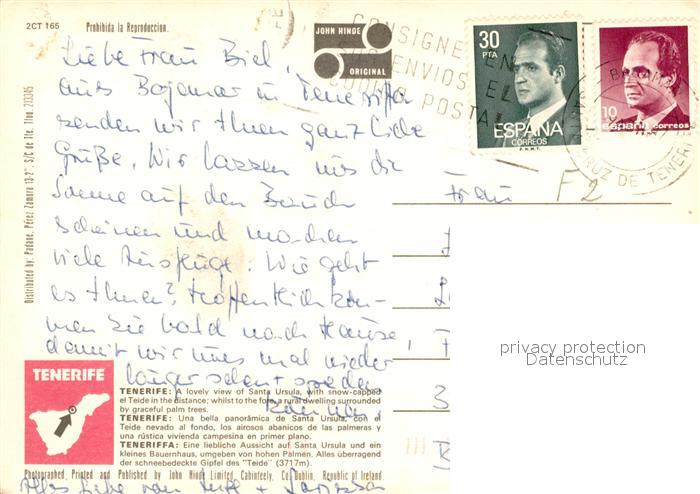 2CT 165
Prohibida la Reproduccion.
JOHN HINDE
ORIGINAL
CONSIGNE EN
SUS ENVIOS EL
POSTAL
30
PTA
ESPAÑA
CORREOS
F.N.M.T.
10
españa correos
CRUZ DE TENERI
Liebe Frau Biel,
aus Bajamar in Teneriffa
senden wir Ihnen ganz liebe
Grüße. Wir lassen uns die
Sonne auf den Bauch
scheinen und machen
viele Ausflüge. Wie geht
es Ihnen? Hoffentlich kön-
nen Sie bald nach Hause,
damit wir uns mal wieder
länger sehen + sprechen
können
Alles Liebe von
Frau
F2
Distributed by: Padane. Pérez Zamora 13-2°. S/C de Tfe. Tfno. 213345
privacy protection
Datenschutz
TENERIFE
TENERIFE: A lovely view of Santa Ursula, with snow-capped
el Teide in the distance; whilst to the fore a rural dwelling surrounded
by graceful palm trees.
TENERIFE: Una bella panorámica de Santa Ursula, con el
Teide nevado al fondo, los airosos abanicos de las palmeras y
una rústica vivienda campesina en primer plano.
TENERIFFA: Eine liebliche Aussicht auf Santa Ursula und ein
kleines Bauernhaus, umgeben von hohen Palmen. Alles überragend
der schneebedeckte Gipfel des "Teide" (3717m).
Photographed, Printed and Published by John Hinde Limited, Cabinteely, Co. Dublin, Republic of Ireland.